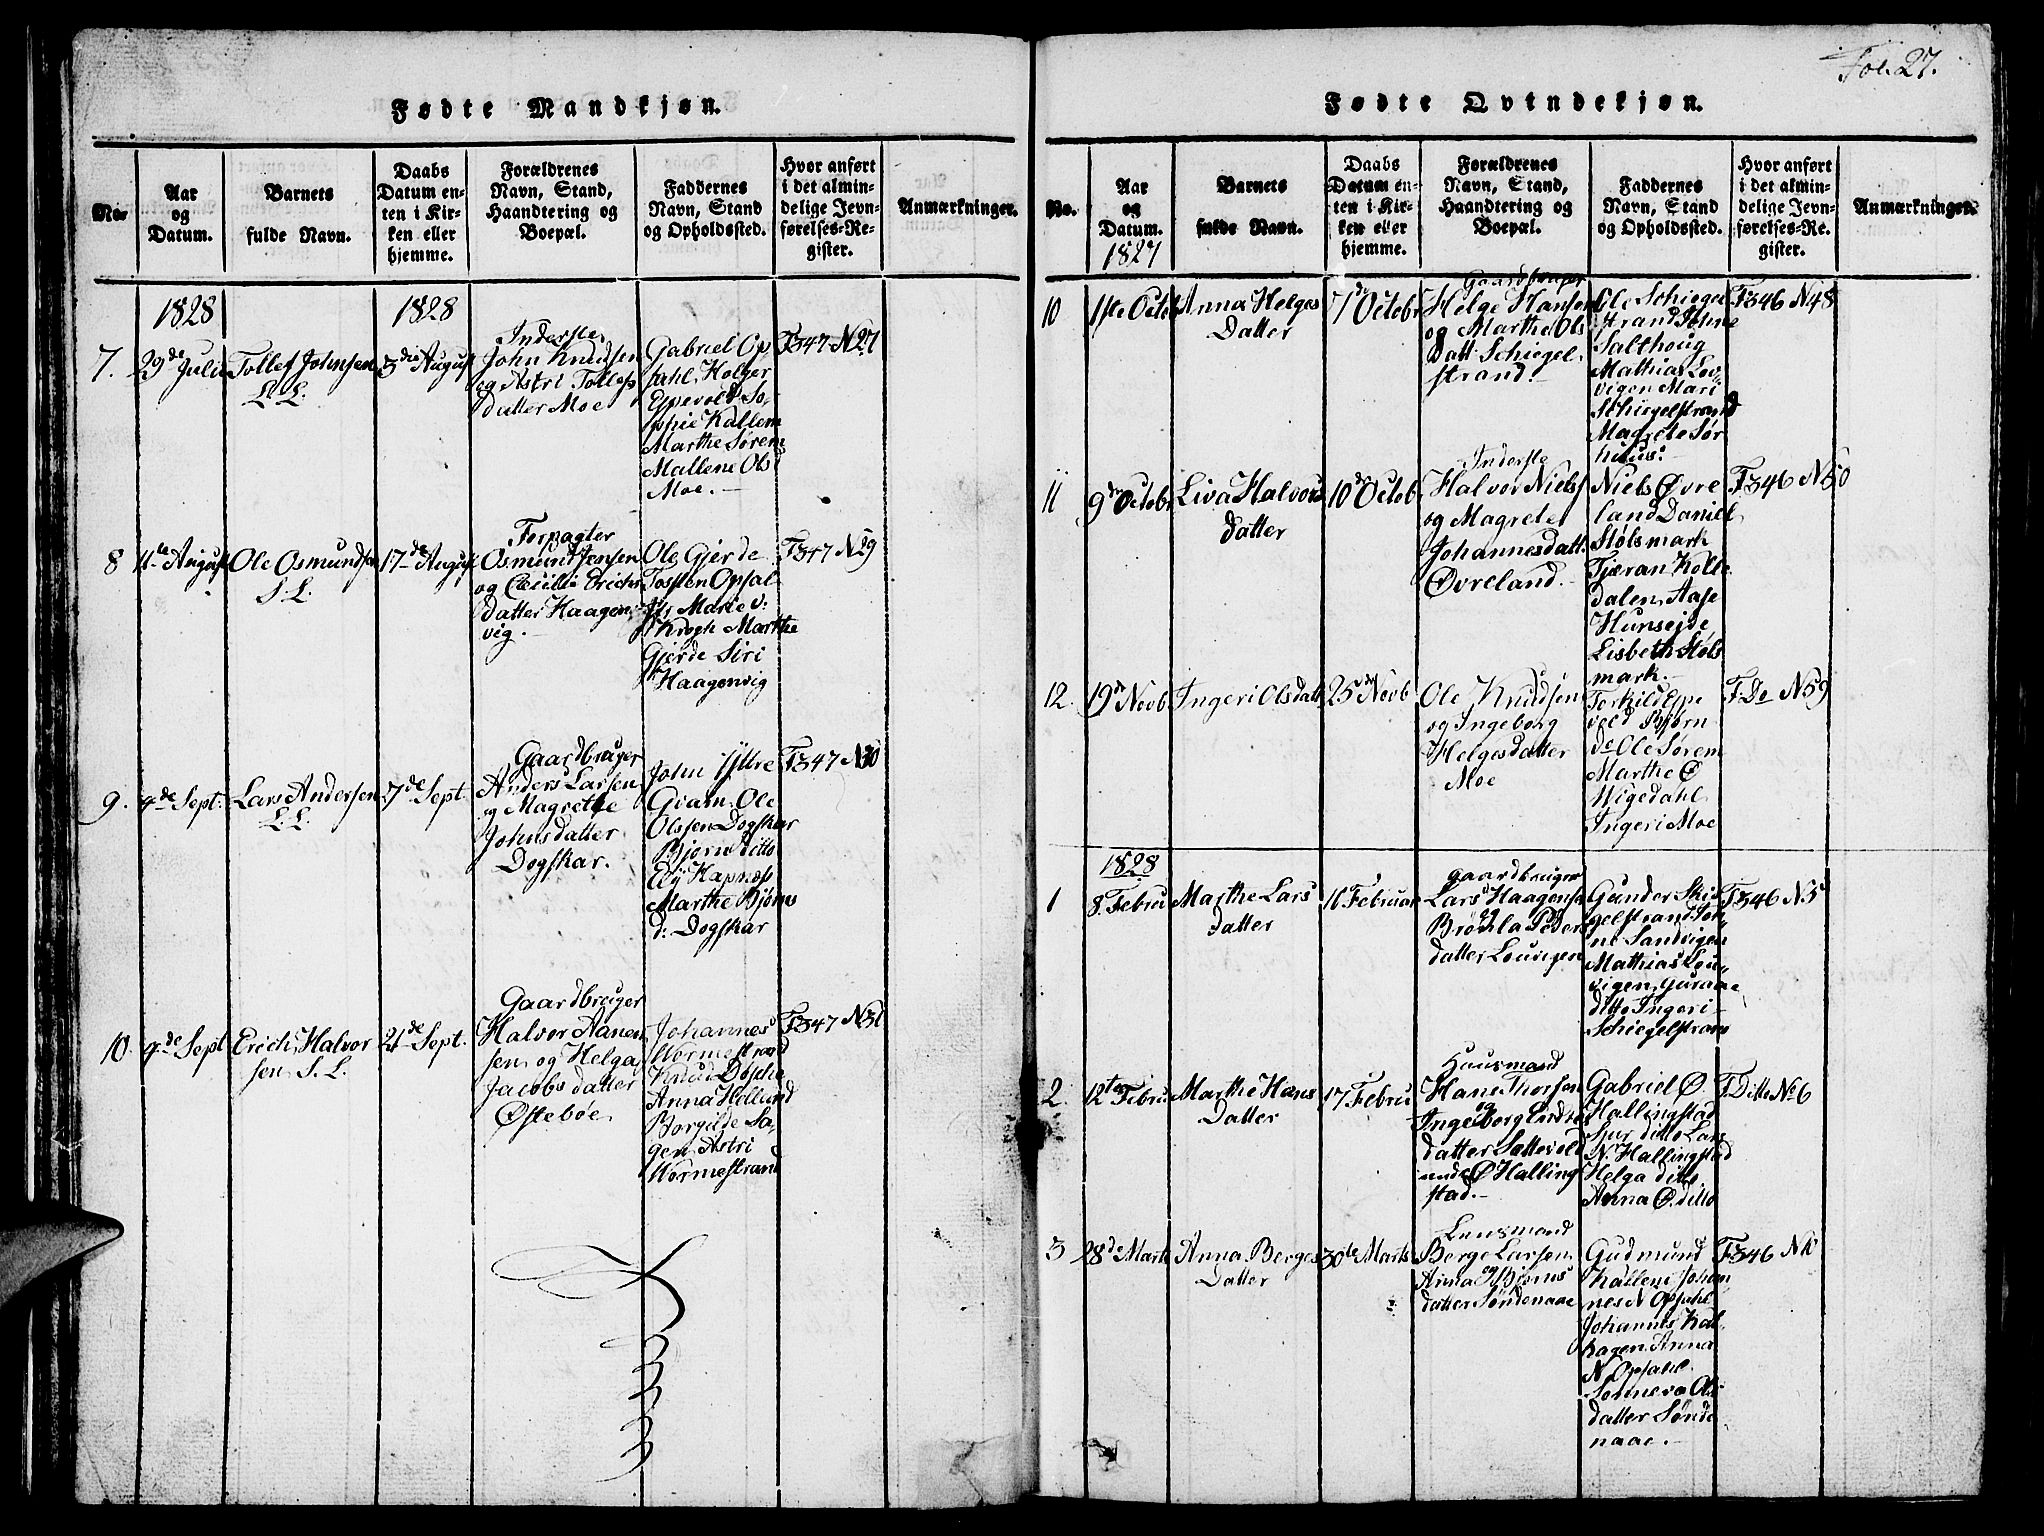 Fødte Mandkjøn.
No.
Aar
og
Datum.
Barnets
fulde Navn.
Daabs
Datum en-
ten i Kir-
ken eller
hjemme.
Forældrenes
Navn, Stand,
Haandtering og
Boepæl.
Faddernes
Navn, Stand
og Opholdssted.
Hvor anført
i det almin-
delige Jevn-
førelses-Re-
gister.
Anmærkninger.
1828
1828
7.
29de Julii
Tollef Johnsen
L.L.
3die August
Inderste
John Knudsen
og Astri Tollefs
datter Moe
Gabriel Op
sahl, Holger
Espevold So-
phie Kallem
Marthe Sørem
Mallene Ols d
Moe.
F347 N27
8
11te August
Ole Osmundsen
S.L.
17de August
Forpagter
Osmund Jensen
og Cecilie Erichs
datter Haagen-
vig.
Ole Gjerde
Tosten Opsal
Marie v:
Krogh Marthe
Gjerde Siri
Haagenvig
F347 N29
9.
4de Sept:
Lars Andersen
L.L.
7de Sept.
Gaardbruger
Anders Larsen
og Magrethe
Johnsdatter
Dogskar.
John Yttre
Gram, Ole
Olssen Dogskar
Bjørn ditto
Ely Hapnæss
Marthe Bjørns
d: Dogskar
F347 N30
10.
9de Sept
Erich Halvor
sen S.L.
21de Sept.
Gaardbruger
Halvor Aanen
sen og Helga
Jacobs datter
Østebøe
Johannes
Wormestrand
Knud Dospe
Anna Holland
Borgilde Sa-
gen Astri
Wormestrand
F347 N31
Fol. 27.
Fødte Qvindekjøn.
No.
Aar
og
Datum.
1827
Barnets
fulde Navn.
Daabs
Datum en-
ten i Kir-
ken eller
hjemme.
Forældrenes
Navn, Stand,
Haandtering og
Boepæl.
Faddernes
Navn, Stand
og Opholdssted.
Hvor anført
i det almin-
delige Jevn-
førelses-Re-
gister.
Anmærkninger.
10
1ste Octob
Anna Helges
Datter
7de Octobr
Gaardbruger
Helge Hansen
og Marthe Ols
Datt Schiegel
strand.
Ole Schiegel
strand Johne
Salthoug
Mathias Lov-
vigen Mari
Schiegelstrand
Magrete Sør
huus.
F346 N48
11
9de Octobr
Liva Halvors
datter
10de Octob
Inderste
Halvor Niels
og Magrete
Johannesdatt.
Øvreland.
Niels Øvre
land Daniel
Stølsmark
Tjeran Kolle
dalen, Aase
Hunseide
Lisbeth Støls
mark.
F346 N50
12.
19de Novb
Ingeri Olsdatt
25de Novb
Ole Knudsen
og Ingeborg
Helgesdatter
Moe
Torkild Espe
vold Bjørn
do Ole Sørem
Marthe Ø
Wigedahl
Ingeri Moe
F. Do N59
1828
1
8. Febru
Marthe Lars
datter
16 Februar
gaardbruger
Lars Haagensen
og
Brøhla Peder
datter Louvigen
Gunder Ski
gelstrand Joh-
ne Sandvigen
Mathias Lou-
vigen, Guroae
ditto Ingeri
Schiegelstrand
F346 N5
2.
12te Febru
Marthe Hans
Datter
17 Febru
Huusmand
Hans Thorsen
og
Ingeborg Endres
datter Sættevold
unde Ø Halling
stad.
Gabriel Ø.
Hallingstad
Siur ditto Lars
N. Hallingstad
Helga ditto
Anna Ø. ditto
F Ditto No 6
3
28de Marti
Anna Berges
Datter
30te Marts
Lensmand
Berge Larsen
og
Anna Bjørns
datter Søndenaae
Gudmund
Kallem Johan-
nes N Opsahl.
Johannes Kal-
hagen, Anna
N Opsahl.
Sonneva Ols
datter Sønde
naae.
F346 N10